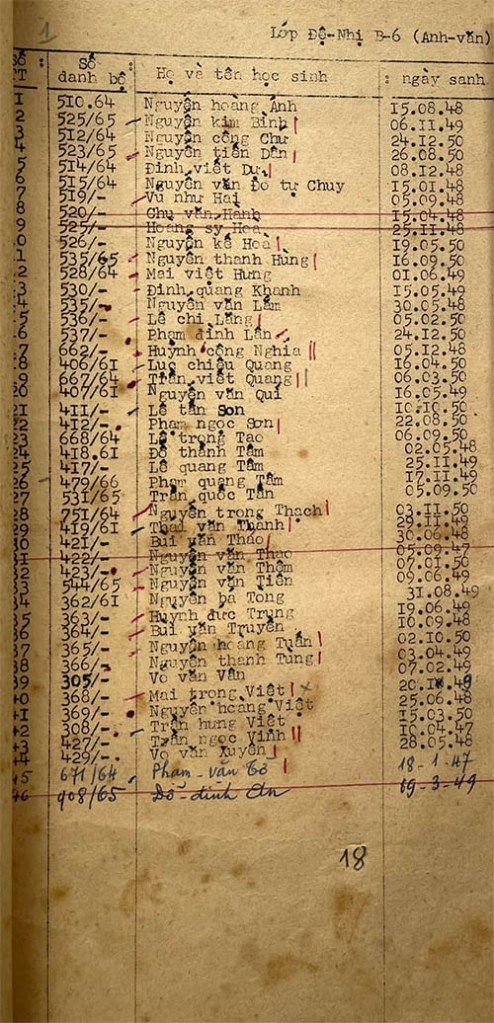 1
Lớp Đệ-Nhị B-6 (Anh-văn)
Số TT : Số danh bộ : Họ và tên học sinh : ngày sanh
1 510.64 Nguyễn hoàng Ánh 15.08.48
2 525/65 Nguyễn kim Bính 06.11.49
3 512/64 Nguyễn công Chư 24.12.50
4 523/65 Nguyễn tiến Dần 26.08.50
5 514/64 Đinh viết Dự 08.12.48
6 515/64 Nguyễn văn Đỏ tự Chuy 15.01.48
7 519/- Vũ như Hai 05.09.48
8 520/- Chu văn Hạnh 15.04.48
9 525/- Hoàng sỹ Hoà 25.11.48
0 526/- Nguyễn kế Hoà 19.05.50
1 535/65 Nguyễn thanh Hùng 16.09.50
2 528/64 Mai việt Hưng 01.06.49
3 530/- Đinh quang Khanh 15.05.49
4 535/- Nguyễn văn Lâm 30.05.48
5 536/- Lê chí Lăng 05.02.50
6 537/- Phạm đình Lân 24.12.50
7 662/- Huỳnh công Nghĩa 05.12.48
8 406/61 Lục chiêu Quang 16.04.50
9 667/64 Trần viết Quang 06.03.50
20 407/61 Nguyễn văn Quí 16.05.49
21 411/- Lê tấn Sơn 10.10.50
22 412/- Phạm ngọc Sơn 22.08.50
23 668/64 Lê trọng Tạo 06.09.50
24 418.61 Đỗ thành Tâm 02.05.48
25 417/- Lê quang Tâm 25.11.49
26 479/66 Phạm quang Tâm 17.11.49
27 531/65 Trần quốc Tấn 05.09.50
28 751/64 Nguyễn trọng Thạch 03.11.50
29 419/61 Thái văn Thanh 29.11.49
30 421/- Bùi văn Thảo 30.06.48
31 422/- Nguyễn văn Thạo 05.09.47
32 423/- Nguyễn văn Thơm 07.01.50
33 544/65 Nguyễn văn Tiên 09.06.49
34 362/61 Nguyễn bá Tòng 31.08.49
35 363/- Huỳnh đức Trung 19.06.49
36 364/- Bùi văn Truyền 10.09.48
37 365/- Nguyễn hoàng Tuấn 02.10.50
38 366/- Nguyễn thanh Tùng 03.04.49
39 305/- Võ văn Vân 07.02.49
40 368/- Mai trọng Việt
41 369/- Nguyễn hoàng Việt 25.06.48
42 308/- Trần hưng Việt 15.03.50
43 427/- Trần ngọc Vinh 10.04.47
44 429/- Võ văn Xuyên 28.05.48
45 671/64 Phạm-văn Cỏ 18-1-47
46 908/65 Đỗ-đình An 09-3-49
18